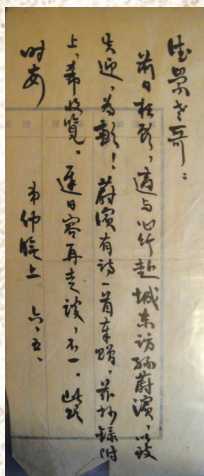 德崇老哥：
前日枉顾，适与心竹赴城东访孙蔚滨，以致
失迎，为歉！蔚滨有诗一首奉赠，兹抄录附
上，希收览。迟日容再走谈，不一。此致
时安
弟仲 上 六、五、